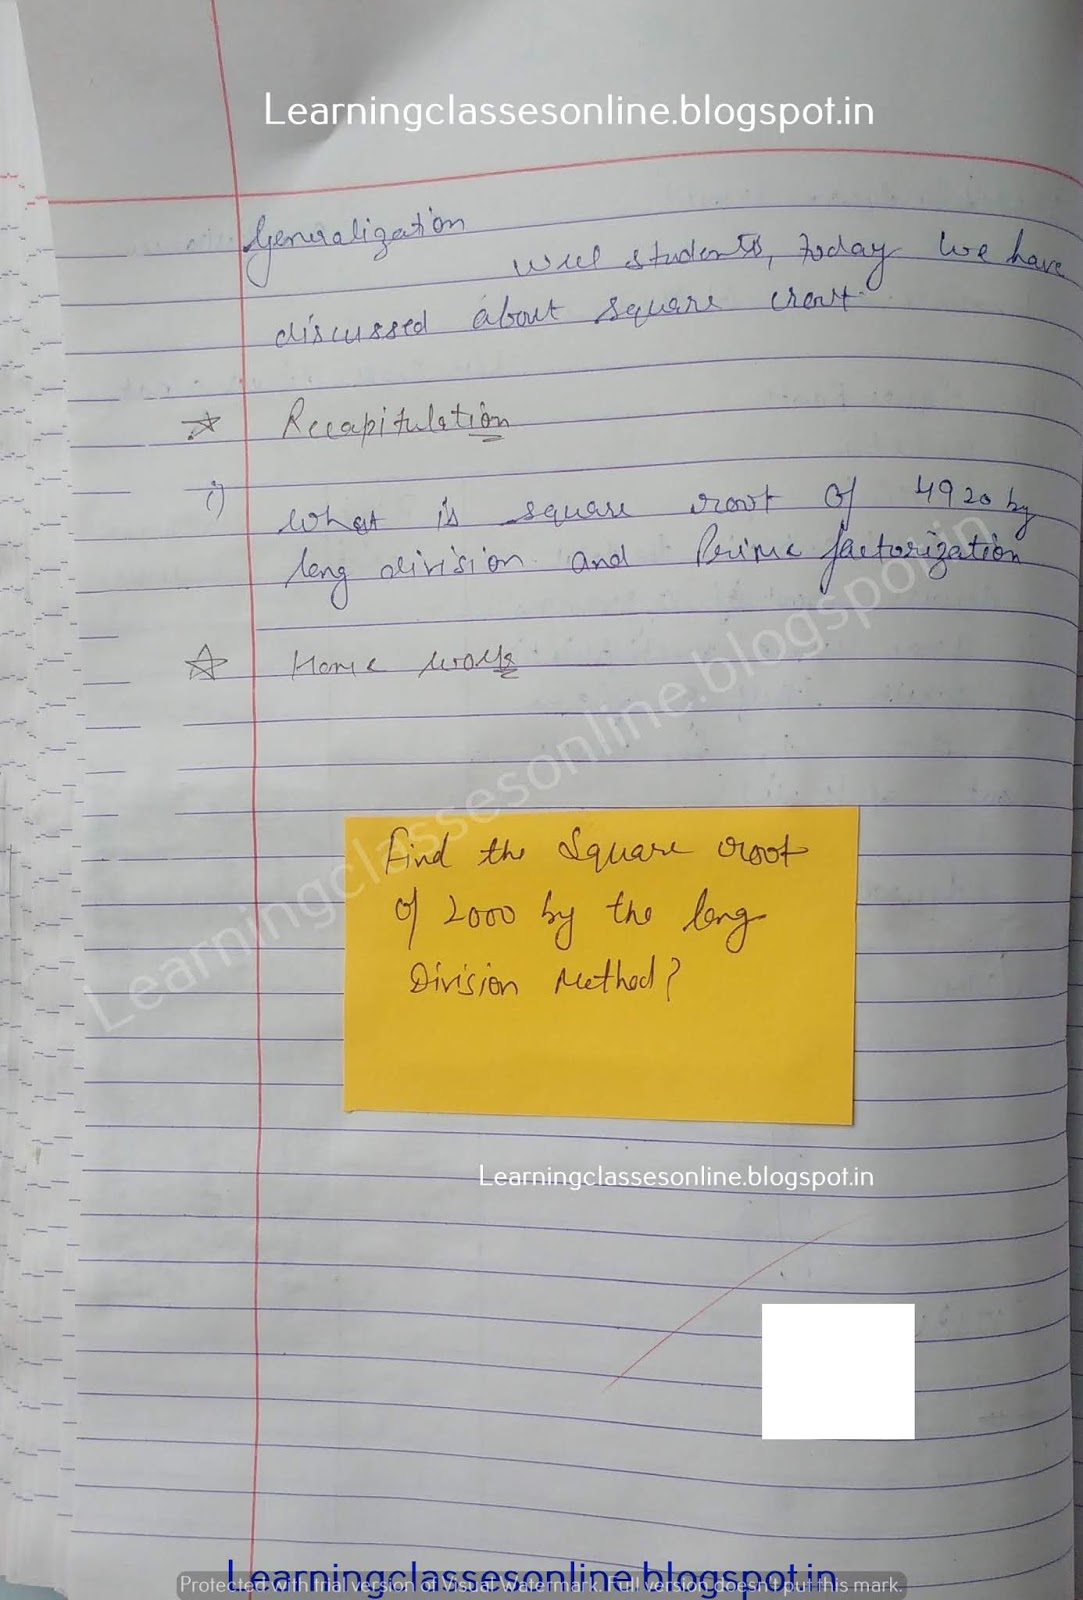 Learningclassesonline.blogspot.in
Generalization
Well students, today we have
discussed about square root.
Recapitulation
i) What is square root of 4920 by
long division and Prime factorization
Home work
Learningclassesonline.blogspot.in
Find the Square root
of 2000 by the long
Division Method?
Learningclassesonline.blogspot.in
Learningclassesonline.blogspot.in
Protected with trial version of Visual Watermark. Full version doesn't put this mark.